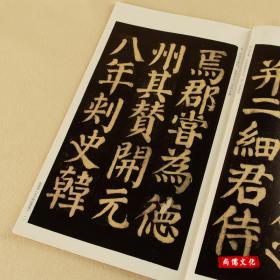 并二細君侍
焉郡嘗為德
州其贊開元
八年刺史韓
文化